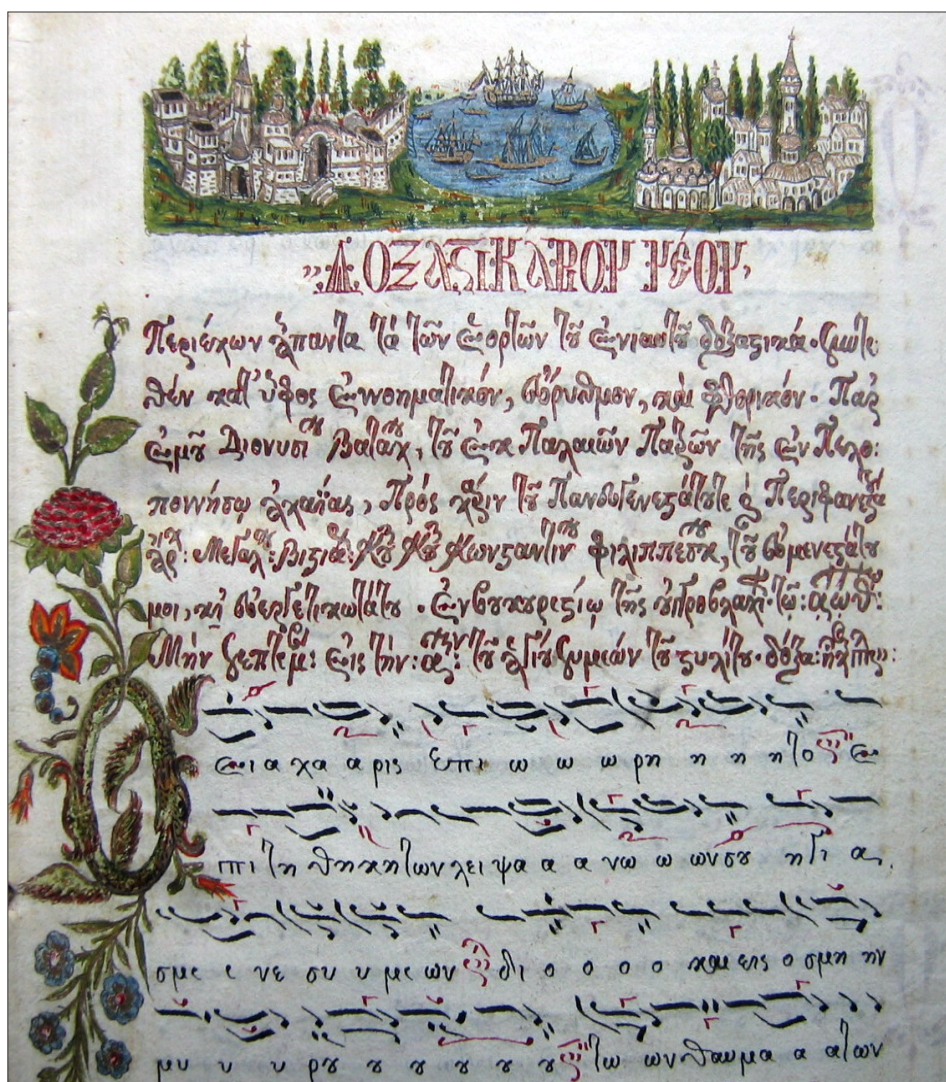 ΔΟΞΑΣΤΙΚΑΡΙΟΥ ΝΕΟΥ
Περιέχων ἅπαντα τὰ τῶν ἑορτῶν τοῦ ἐνιαυτοῦ δοξαστικά. Συντε
θὲν κατ' ὕφος ἐννοηματικόν, εὔρυθμον, καὶ φθορικόν. Παρ
ἐμοῦ Διονυσίου Βατάχ, τοῦ ἐκ Παλαιῶν Πατρῶν τῆς ἐν Πελο:
ποννήσῳ ἀχαΐας, Πρὸς χάριν τοῦ Πανευγενεστάτου
Μεγάλ: Κωνσταντίν φιλιππέσκ, τοῦ εὐμενεστάτου
μοι, κὴ εὐεργετικωτάτου. Ἐν βουκουρεστίῳ τῆς
Μὴν Σεπτέμ: εἰς τὴν: α: τοῦ ἁγίου Συμεὼν τοῦ στυλίτου. δόξα:
α χα α ρις επι ω ω ω ρη η η η το ε
πι τη θηκη των λει ψα α α νω ω ων σου η γι α
σμε ε νε συ υ με ων δι ο ο ο ο και εις ο σμη ην
μυ υ υ ρου ου ου ου ου ου ου τω ων θαυμα α α των